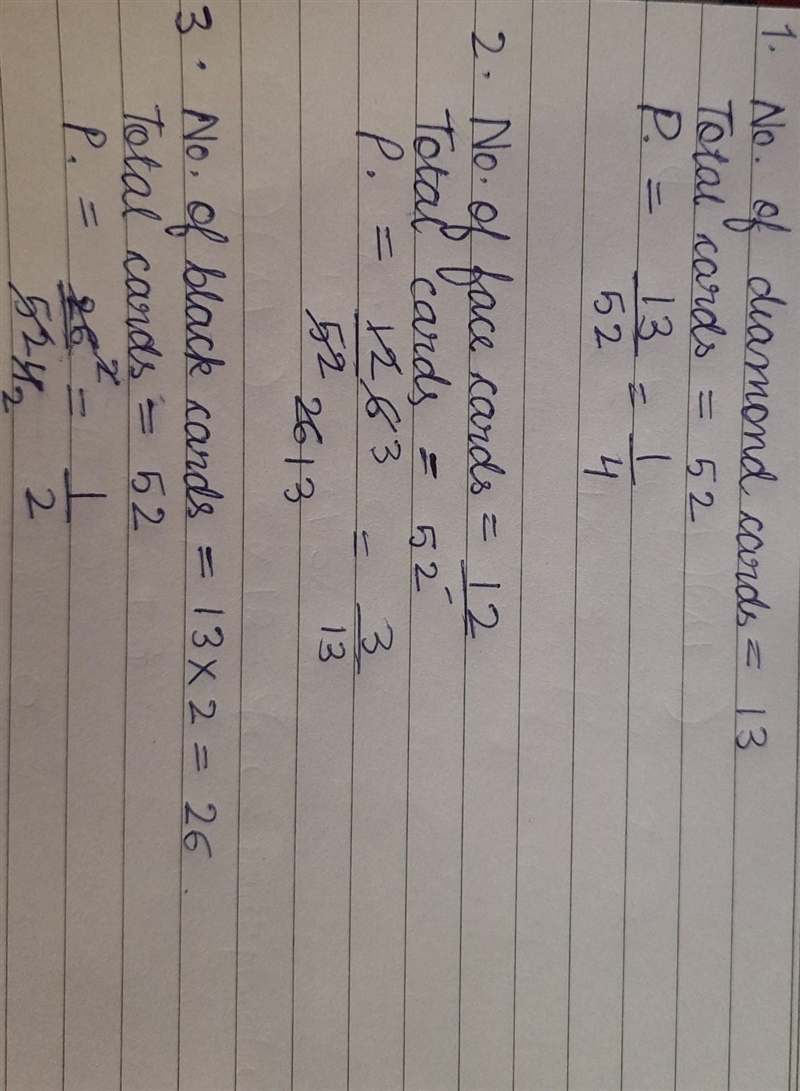 1. No. of diamond cards = 13
Total cards = 52
P. = 13/52 = 1/4
2. No. of face cards = 12
Total cards = 52
P. = 12 6 3 / 52 26 13 = 3/13
3. No. of black cards = 13 x 2 = 26
Total cards = 52
P. = 26 2 / 52 4 2 = 1/2